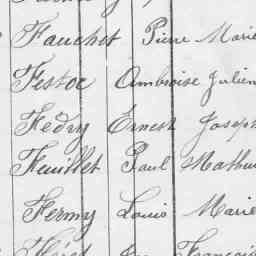 Fauchet Pierre Marie
Festoc Ambroise Julien
Fédry Ernest Joseph
Feuillet Paul Mathu
Fermy Louis Marie